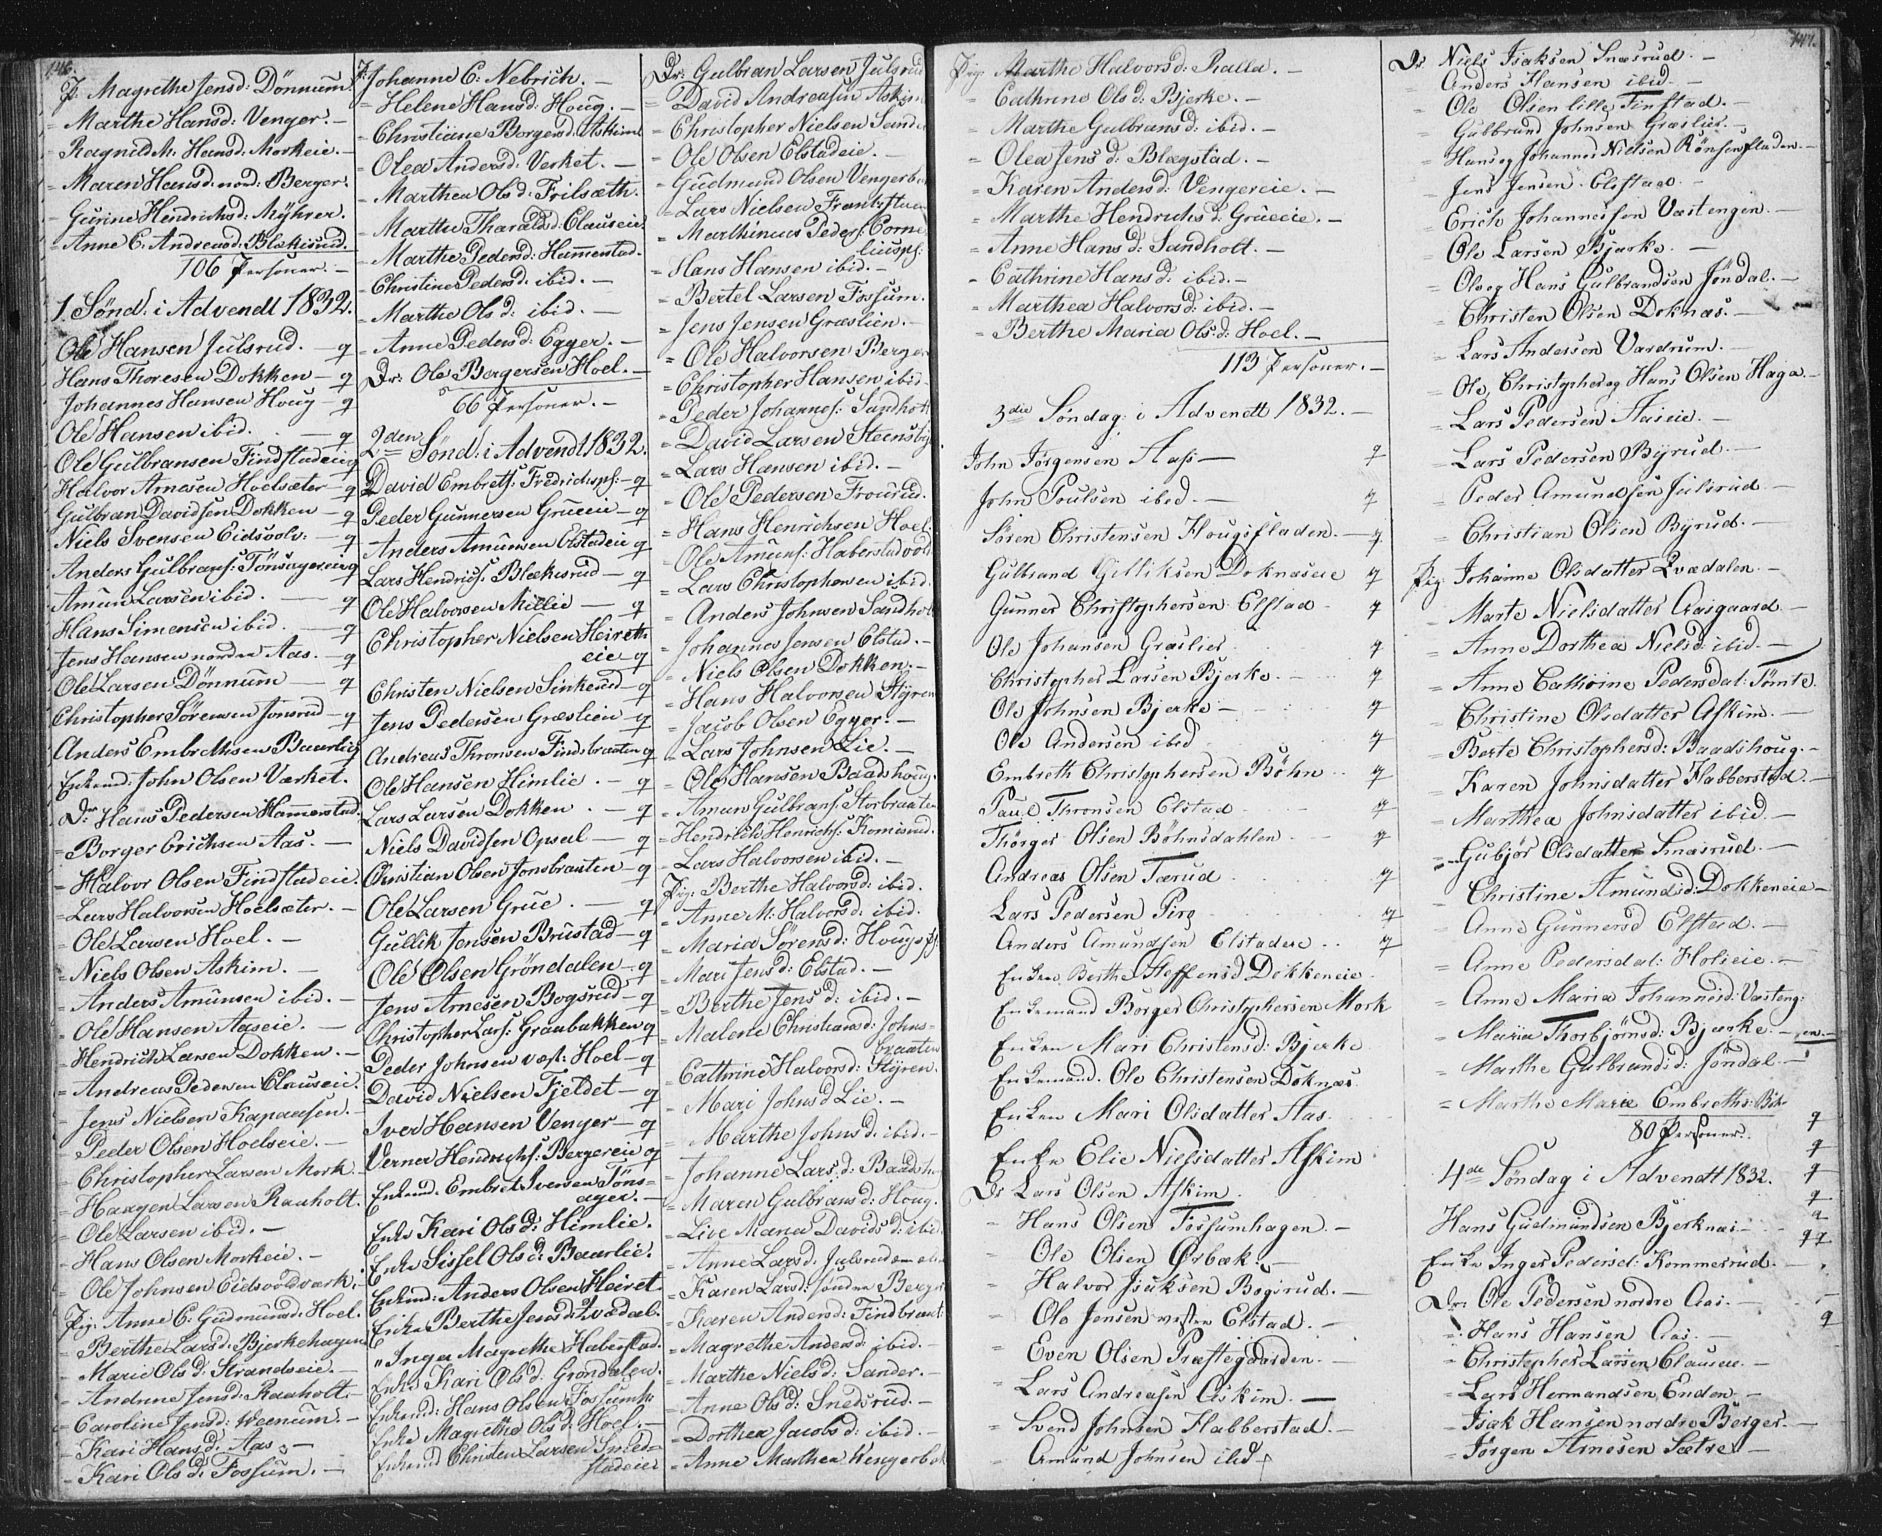 146.
P. Magrethe Jensd: Dönnum.
- Marthe Hansd: Venger. -
- Ragnild M: Hansd: Morkeie. -
- Maren Hansd: nord: Berger.
- Gurine Hendrichsd: Myhrer.
- Anne E: Andreasd: Blekisrud.
106 Personer. -
1. Sönd: i Advendt 1832.
Ole Hansen Julsrud. - g
Hans Thoresen Dokken - g
Johannes Hansen Houg - g
Ole Hansen ibid. - g
Ole Gulbransen Findstadeie g
Halvor Arnesen Hoelsæter - g
Gulbran Davidsen Dokken - g
Niels Svensen Eidsvolv: - g
Anders Gulbrans: Tönsagereie g
Amun Larsen ibid. - g
Hans Simensen ibid. - g
Jens Hansen nordre Aas. - g
Ole Larsen Dönnum - g
Christopher Sörensen Jonsrud - g
Anders Embrethsen Baarlie g
Enkemd: John Olsen Værket.
Dr: Hans Pedersen Hammerstad.
- Borger Erichsen Aas. -
- Halvor Olsen Findstadeie.
- Lars Halvorsen Hoelsæter. -
- Ole Larsen Hoel. -
- Niels Olsen Askim. -
- Anders Amunsen ibid. -
- Ole Hansen Aaseie. -
- Hendrich Larsen Dokken. -
- Andreas Pedersen Clauseie.
- Jens Nielsen Kapaasen. -
- Peder Olsen Hoelseie. -
- Christopher Larsen Mork -
- Haagen Larsen Raaholt.
- Ole Larsen ibid. -
- Hans Olsen Morkeie. -
- Ole Johnsen Eidsvoldværk. -
Pig: Anne C: Gudmunsd: Hoel.
- Berthe Larsd: Bjerkehagen
- Marie Olsd: Strandseie. -
- Andrine Jensd: Raaholt. -
- Caroline Jensd: Weenum. -
- Kari Hansd: Aas. -
- Kari Olsd: Fossum. -
P: Johanne C: Nebrich. -
- Helene Hansd: Houg. -
- Christiane Borgersd: Askim
- Olea Andersd: Verket. -
- Marthea Olsd: Frilsæth. -
- Marthe Tharaldsd: Clauseie.
- Marthe Pedersd: Hammestad.
- Christine Pedersd: ibid. -
- Marthe Olsd: ibid. -
- Anne Pedersd: Egger. -
Dr: Ole Borgersen Hoel. -
66 Personer. -
2den Sönd: i Advendt 1832.
David Embrets: Fredrichspl: - g
Peder Gunnersen Grueeie - g
Anders Amunsen Elstadeie g
Lars Hendrichs: Blækisrud - g
Ole Halvorsen Millie - g
Christopher Nielsen Heireth
eie - g
Christen Nielsen Sinkerud - g
Jens Pedersen Græslien - g
Andreas Thronsen Findsbraaten g
Ole Hansen Himlie. - g
Lars Larsen Dokken. - g
Niels Davidsen Opsal - g
Christian Olsen Jonsbraaten - g
Ole Larsen Grue. - g
Gullik Jensen Brustad - g
Ole Olsen Gröndalen - g
Jens Arnesen Bogsrud - g
Christopher Lars: Graabakken g
Peder Johnsen vest: Hoel - g
David Nielsen Fjeldet - g
Iver Hansen Venger - g
Verner Hendrichs: Bergereie g
Enkemd. Embret Iversen Töns-
ager. -
Enke Kari Olsd: Himlie.
Enke Sissel Olsd: Baarlie.
Enkmd: Anders Olsen Heiret
Enke Berthe Jensd: Qvædal.
" Inger Magrethe Haberstad.
Enke Kari Olsd: Gröndalen.
Enkemd: Hans Olsen Fossumh:
Enke Magrethe Olsd: Hoel. -
Enkemd Christen Larsen Smed-
stadeie
Dr: Gulbran Larsen Julsrud
- David Andreasen Askim
- Christopher Nielsen Sander
- Ole Olsen Elstadeie. -
- Gudmund Olsen Vengerb
- Lars Nielsen Frankstuen
- Marthinus Peders: Corne
liuspl:
- Hans Hansen ibid. -
- Bertel Larsen Fossum.
- Jens Jensen Græslien. -
- Ole Halvorsen Berger
- Christopher Hansen ibid.
- Peder Johannes: Sandholt
- David Larsen Steensby
- Lars Hansen ibid. -
- Ole Pedersen Frourud.
- Hans Henrichsen Hoel.
- Ole Amuns: Haberstadvold
- Lars Christophersen ibid.
- Anders Johnsen Sandholt
- Johannes Jensen Elstad. -
- Niels Olsen Dokken. -
- Hans Halvorsen Styren
- Jacob Olsen Egger. -
- Lars Johnsen Lie. -
- Ole Hansen Baadshoug.
- Amun Gulbrans: Storbraaten
- Hendrich Henrichs: Komisrud.
- Lars Halvorsen ibid. -
Pig: Berthe Halvorsd: ibid.
- Anne M: Halvorsd: ibid.
- Maria Sörensd: Hougsfl:
- Mari Jensd: Elstad. -
- Berthe Jensd: ibid. -
- Malene Christiansd: Johns-
braaten
- Cathrine Halvorsd: Styren.
- Mari Johnsd Lie. -
- Marthe Johnsd: ibid. -
- Johanne Larsd: Baadsho
- Maren Gulbransd: Houg.
- Live Maria Davidsd: ibid
- Anne Larsd: Julsrud
- Karen Larsd: söndre Berger
- Karen Andersd: Findbraat:
- Magrethe Andersd: ibid. -
- Marthe Nielsd: Sander. -
- Anne Olsd: Snedsrud. -
- Dorthea Jacobsd: ibid. -
- Anne Marthea Wengerbak
Pig: Marthe Halvorsd: Ralla. -
- Cathrine Olsd: Bjerke. -
- Marthe Gulbransd: ibid. -
- Olea Jensd: Blægstad. -
- Karen Andersd: Vengereie. -
- Marthe Hendrichsd: Grueeie. -
- Anne Hansd: Sandholt. -
- Cathrine Hansd: ibid. -
- Marthea Halvorsd: ibid. -
- Berthe Maria Olsd: Hoel. -
113 Personer. -
3die Söndag i Advendt 1832. -
John Jörgensen Aas - g
John Poulsen ibid. - g
Sören Christensen Hougsfladen. - g
Gulbrand Gulliksen Doknæseie g
Gunner Christophersen Elstad - g
Ole Johansen Græslier g
Christopher Larsen Bjerke. g
Ole Johnsen Bjerke - g
Ole Andersen ibid g
Embreth Christophersen Böhn g
Paul Thronsen Elstad g
Thörger Olsen Böhnsdahlen g
Andreas Olsen Tærud g
Lars Pedersen Pirg g
Anders Amundsen Elstadeie g
Enken Berthe Steffensd Dokkeneie
Enkemand Borger Christophersen Mork
Enken Mari Christensd: Bjerke
Enkemand. Ole Christensen Doknæs
Enken Mari Olsdatter Aas
Enke Elie Nielsdatter Askim
Dr Lars Olsen Askim.
- Hans Olsen Fossumhagen. -
- Ole Olsen Ørbæk. -
- Halvor Isaksen Bogsrud. -
- Ole Jensen vestre Elstad. -
- Even Olsen Præstegaarden. -
- Lars Andreasen Askim. -
- Svend Johnsen Habberstad. -
- Amund Johnsen ibid -
147.
Dr Niels Isaksen Snæsrud. -
- Anders Hansen ibid. -
- Ole Olsen lille Finstad. -
- Gulbrand Johnsen Græslier. -
- Hans og Johannes Nielsen Rönsenfladen. -
- Jens Jensen Elstad. -
- Erich Johannessen Væstengen. -
- Ole Larsen Bjærke. -
- Ole og Hans Gulbrandsen Jöndal. -
- Christen Olsen Doknæs. -
- Lars Andersen Vardrum. -
- Ole, Christopher og Hans Olsen Haga. -
- Lars Pedersen Aaseie. -
- Lars Pedersen Byrud. -
- Peder Amundsen Julsrud -
- Christian Olsen Byrud. -
Pig: Johanne Olsdatter Qvædalen. -
- Marte Nielsdatter Aasgaard -
- Anne Dorthea Nielsd: ibid. -
- Anne Cathrine Pedersdat: Tömte.
- Christine Olsdatter Askim. -
- Berte Christophersd: Baadshoug. -
- Karen Johnsdatter Habberstad. -
- Marthea Johnsdatter ibid. -
- Gubjör Olsdatter Snæsrud. -
- Christine Amundsd: Dokkeneie -
- Anne Gunnersd Elstad. -
- Anne Pedersdat: Holieie. -
- Anne Maria Johannesd: Væsteng:
en. -
- Maria Thorbjörnsd: Bjærke. -
- Marthe Gulbrandsd: Jöndal. -
- Marthe Marie Embrethsd: Böhn
80 Personer. g
g
4de Söndag i Advendt 1832. g
g
Hans Gudmundsen Bjerknæs - g
g g
Enke Inger Pedersd: Kommerud. -
Dr: Ole Pedersen nordre Aas. -
- Hans Hansen Aas. - g
- Christopher Larsen Clauseie. -
- Lars Hermandsen Enden -
- Isak Hansen nordre Berger. -
- Jörgen Arnesen Sætre. -